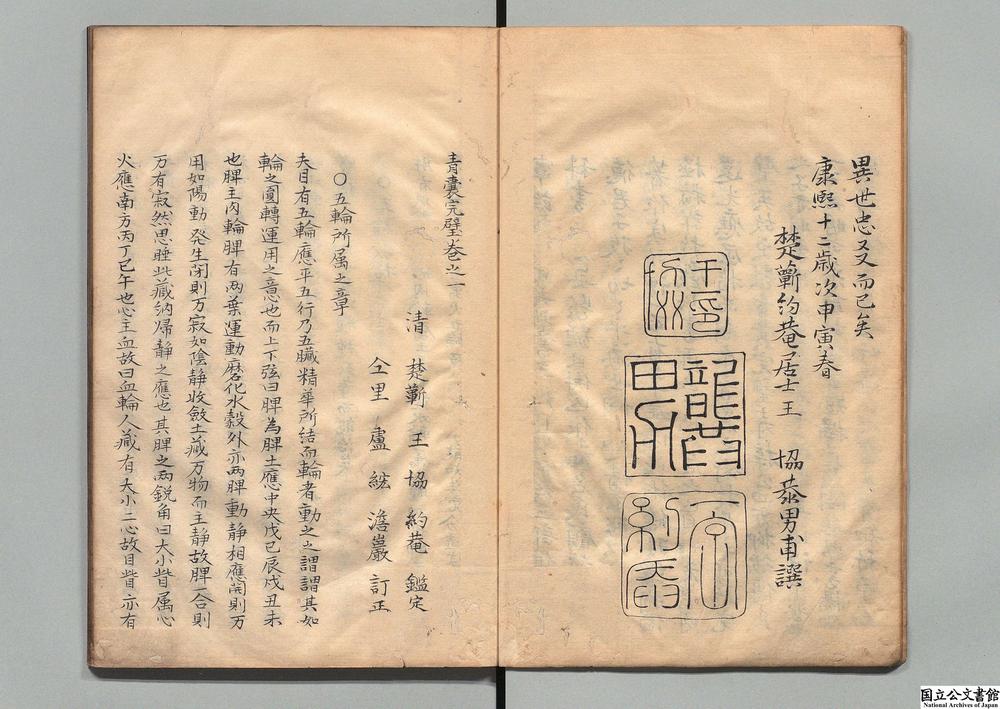 異世忠又又而已矣
康熙十二歳次甲寅春
楚蘄約菴居士王 協恭男甫譔
青囊完璧卷之一
清 楚蘄 王 協 約菴 鑑定
仝里 盧 綋 澹巖 訂正
○五輪所属之章
夫目有五輪應乎五行乃五臟精華所結而輪者動之之謂謂其如
輪之圓轉運用之意也而上下弦曰脾為脾土應中央戊己辰戌丑未
也脾主肉輪脾有两葉運動磨化水穀外亦两脾動静相應開則万
用如陽動発生閉則万寂如陰静收斂土藏万物而主静故脾一合則
万有寂然思睡此藏納帰静之應也其脾之两鋭角曰大小眥属心
火應南方丙丁巳午也心主血故曰血輪人藏有大小二心故目眥亦有
国立公文書館
National Archives of Japan